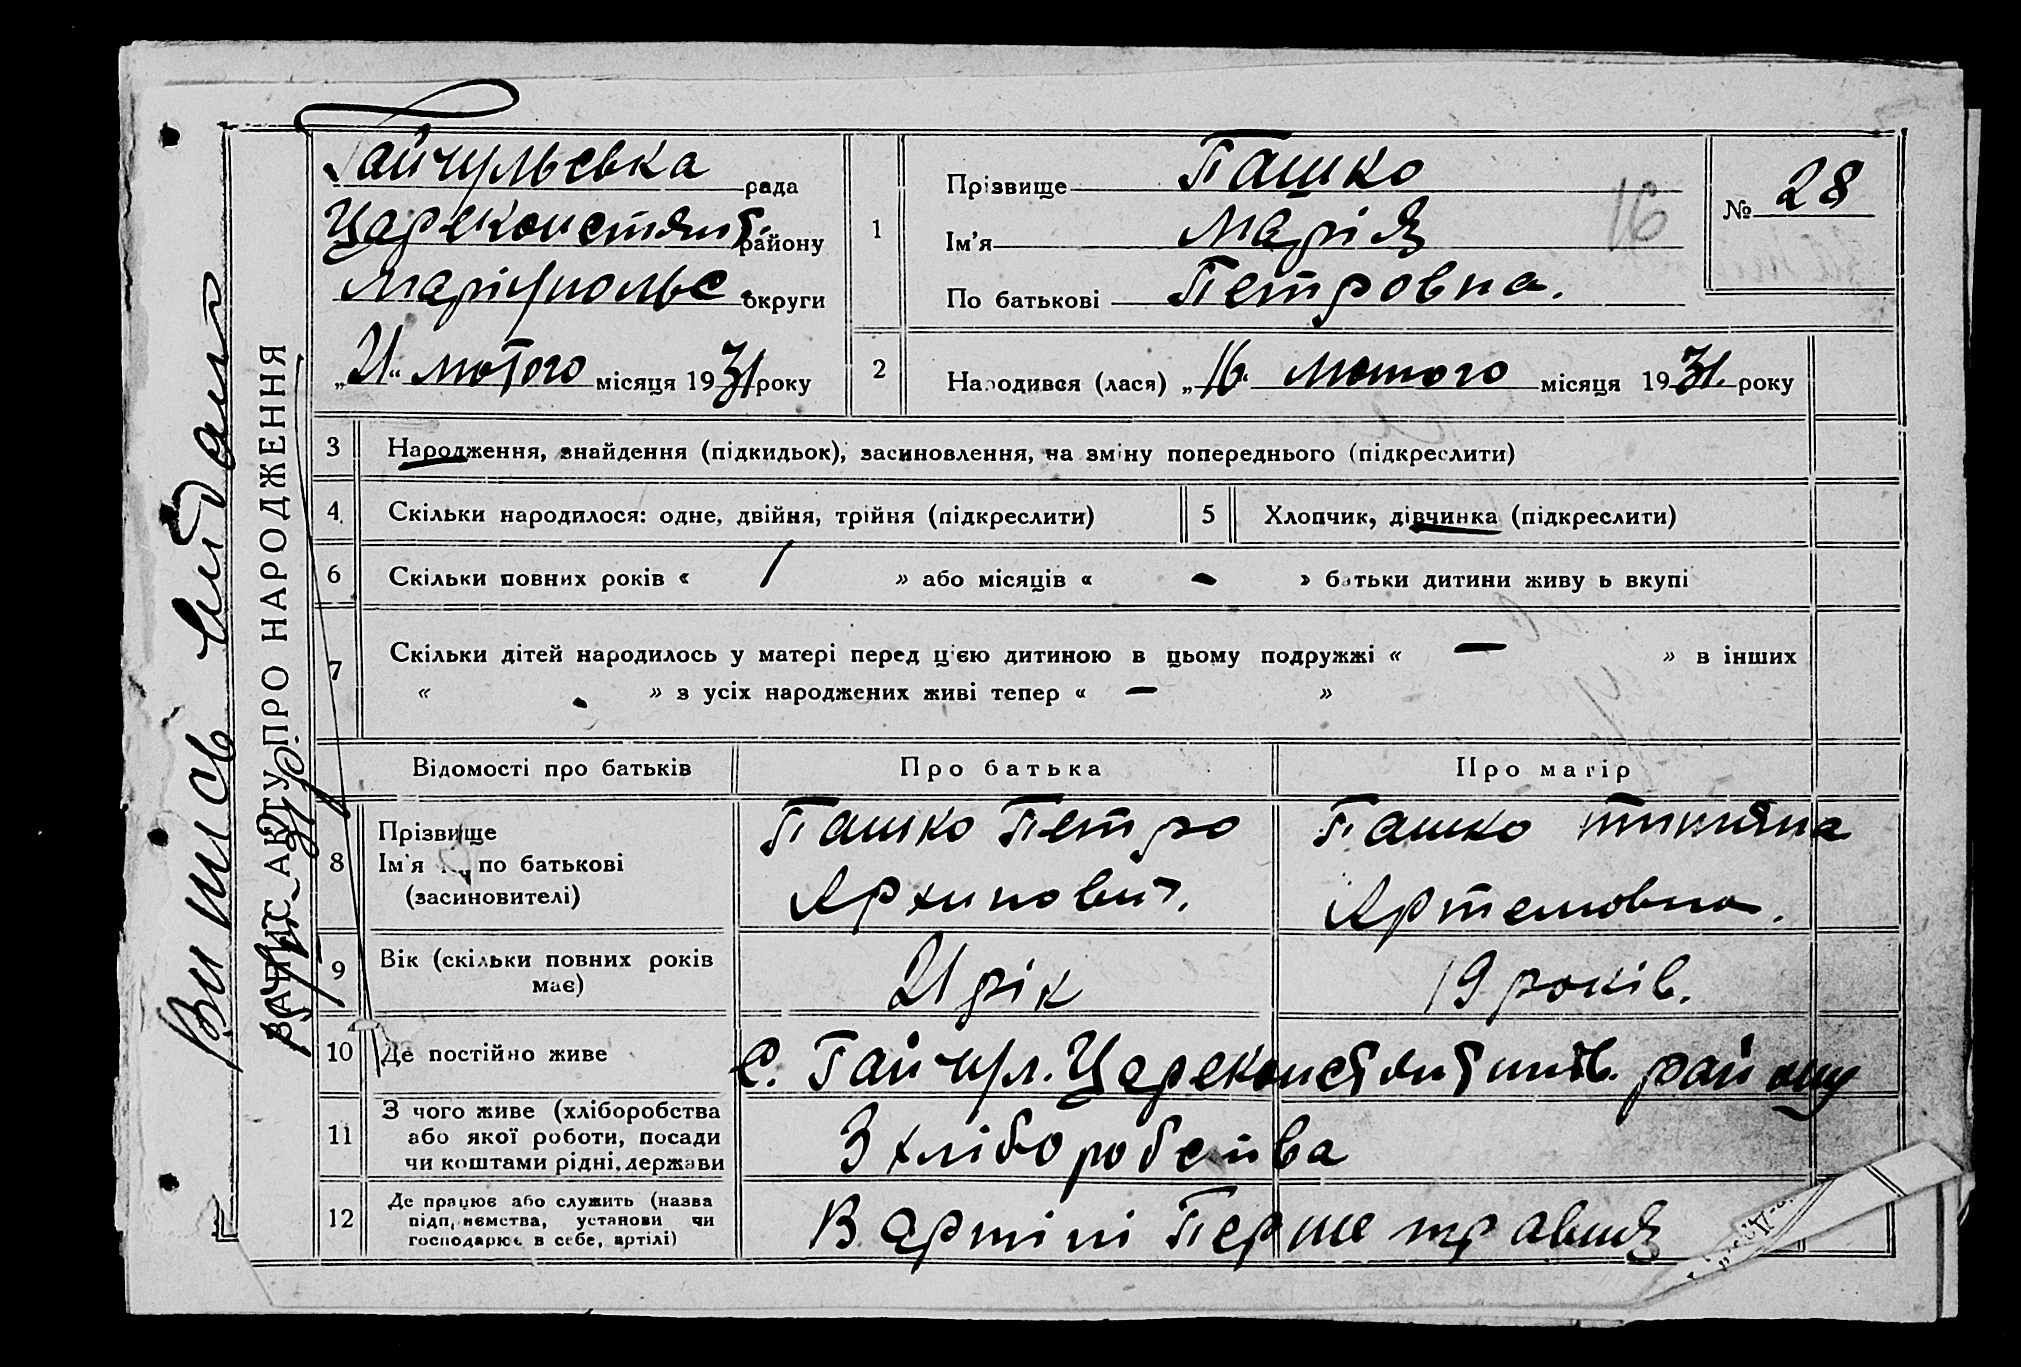 Гайчульська рада
Цареконстянт. району
Маріупольс. округи
„21“ лютого місяця 1931 року
1
Прізвище Пашко
Ім’я Марія
По батькові Петровна.
№ 28
2
Народився (лася) „16“ лютого місяця 1931. року
3 Народження, знайдення (підкидьок), засиновлення, на зміну попереднього (підкреслити)
4 Скільки народилося: одне, двійня, трійня (підкреслити)
5 Хлопчик, дівчинка (підкреслити)
6 Скільки повних років « 1 » або місяців « - » батьки дитини живу ь вкупі
7 Скільки дітей народилось у матері перед цією дитиною в цьому подружжі « — » в інших
« - » з усіх народжених живі тепер « — »
Відомості про батьків
Про батька
Про матір
8 Прізвище
Ім’я по батькові
(засиновителі)
Пашко Петро
Архипович.
Пашко Титяна
Артемовна.
9 Вік (скільки повних років
має)
21 рік
19 років.
10 Де постійно живе
с. Гайчул. Цареконстянтинів. району
11 З чого живе (хліборобства
або якої роботи, посади
чи коштами рідні, держави
З хліборобства
12 Де працює або служить (назва
підприємства, установи чи
господарює в себе, артілі)
В артілі Перше травня
ЗАПИС АКТУ ПРО НАРОДЖЕННЯ
Випись видано